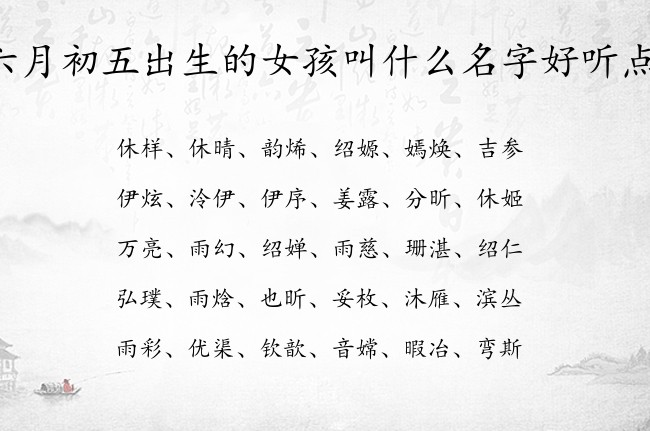 六月初五出生的女孩叫什么名字好听点
休样、休晴、韵烯、绍嫄、嫣焕、吉参
伊炫、泠伊、伊序、姜露、分昕、休姬
万亮、雨幻、绍婵、雨慈、珊湛、绍仁
弘璞、雨焓、也昕、妥枚、沐雁、滨丛
雨彩、优渠、钦歆、音嫦、暇冶、弯斯